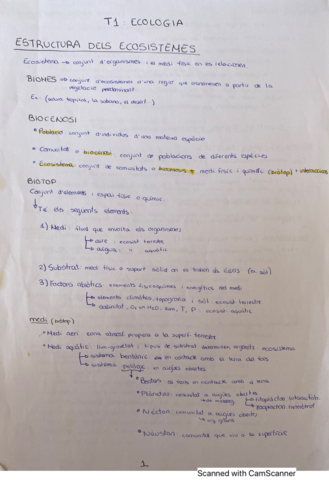 T1: ECOLOGIA
ESTRUCTURA DELS ECOSISTEMES
Ecosistema → conjunt d'organismes i el medi físic on es relacionen
BIOMES → conjunt d'ecosistemes d'una regió que s'anomenen a partir de la
vegetació predominant.
Ex: (selva tropical, la sabana, el desert...)
BIOCENOSI
• Població: conjunt d'individus d'una mateixa espècie
• Comunitat o biocenosi: conjunt de poblacions de diferents espècies
• Ecosistema: conjunt de comunitats o biocenosis + medi físic i químic (biòtop) + interaccions
BIOTOP
Conjunt d'elements i espai físic o químic.
↳ Té els següents elements:
1) Medi: fluid que envolta els organismes
↳ aire: ecosist. terrestre
↳ aigua: " aquàtic
2) Substrat: medi físic o suport sòlid on es troben els éssers
3) Factors abiòtics: elements fisicoquímics i energètics del medi
↳ elements climàtics, topografia i sòl: ecosist. terrestre
↳ salinitat, O₂ en H₂O, llum, T, P: ecosist. aquàtic
medi (biòtop)
• Medi aeri: zona propera a la superf. terrestre
• Medi aquàtic: tipus de substrat ecosistema
↳ sistema bentònic: en contacte amb la zona del fons
↳ sistema pelàgic: en aigües obertes
• Bentos: es troba en contacte amb
• Plàncton: comunitat a aigües obertes
↳ fitoplàncton: autòtrof
↳ zooplàncton: heteròtrof
• Nècton: comunitat a aigües obertes,
• Nèuston: comunitat que viu a la superfície
1
Scanned with CamScanner